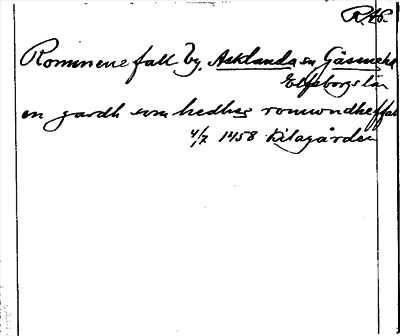 R.Ap.
Rommene fall by, Asklanda sn Gäsene hd
Elfsborgs län
en gardh som hedher romundheffal
4/7 1458 Kilagården